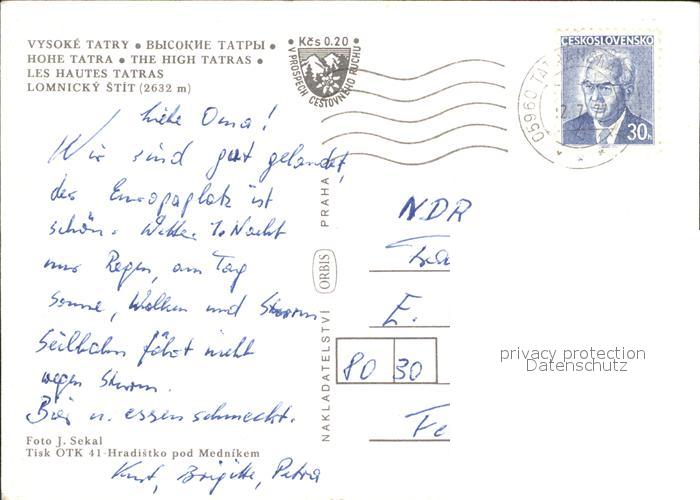 VYSOKÉ TATRY • ВЫСОКИЕ ТАТРЫ •
HOHE TATRA • THE HIGH TATRAS •
LES HAUTES TATRAS
LOMNICKÝ ŠTÍT (2632 m)
Liebe Oma!
Wir sind gut gelandet,
der Europaplatz ist
schön. Wetter 1. Nacht
nur Regen, am Tag
Sonne, Wolken und Sturm
Seilbahn fährt nicht
wegen Sturm.
Bier u. essen schmeckt.
Kurt, Brigitte, Petra
Foto J. Sekal
Tisk OTK 41-Hradištko pod Medníkem
Kčs 0.20
V PROSPĚCH CESTOVNÉHO RUCHU
NAKLADATELSTVÍ ORBIS PRAHA
ČESKOSLOVENSKO
30h
05960 TAT
NDR
E.
80 30
privacy protection
Datenschutz